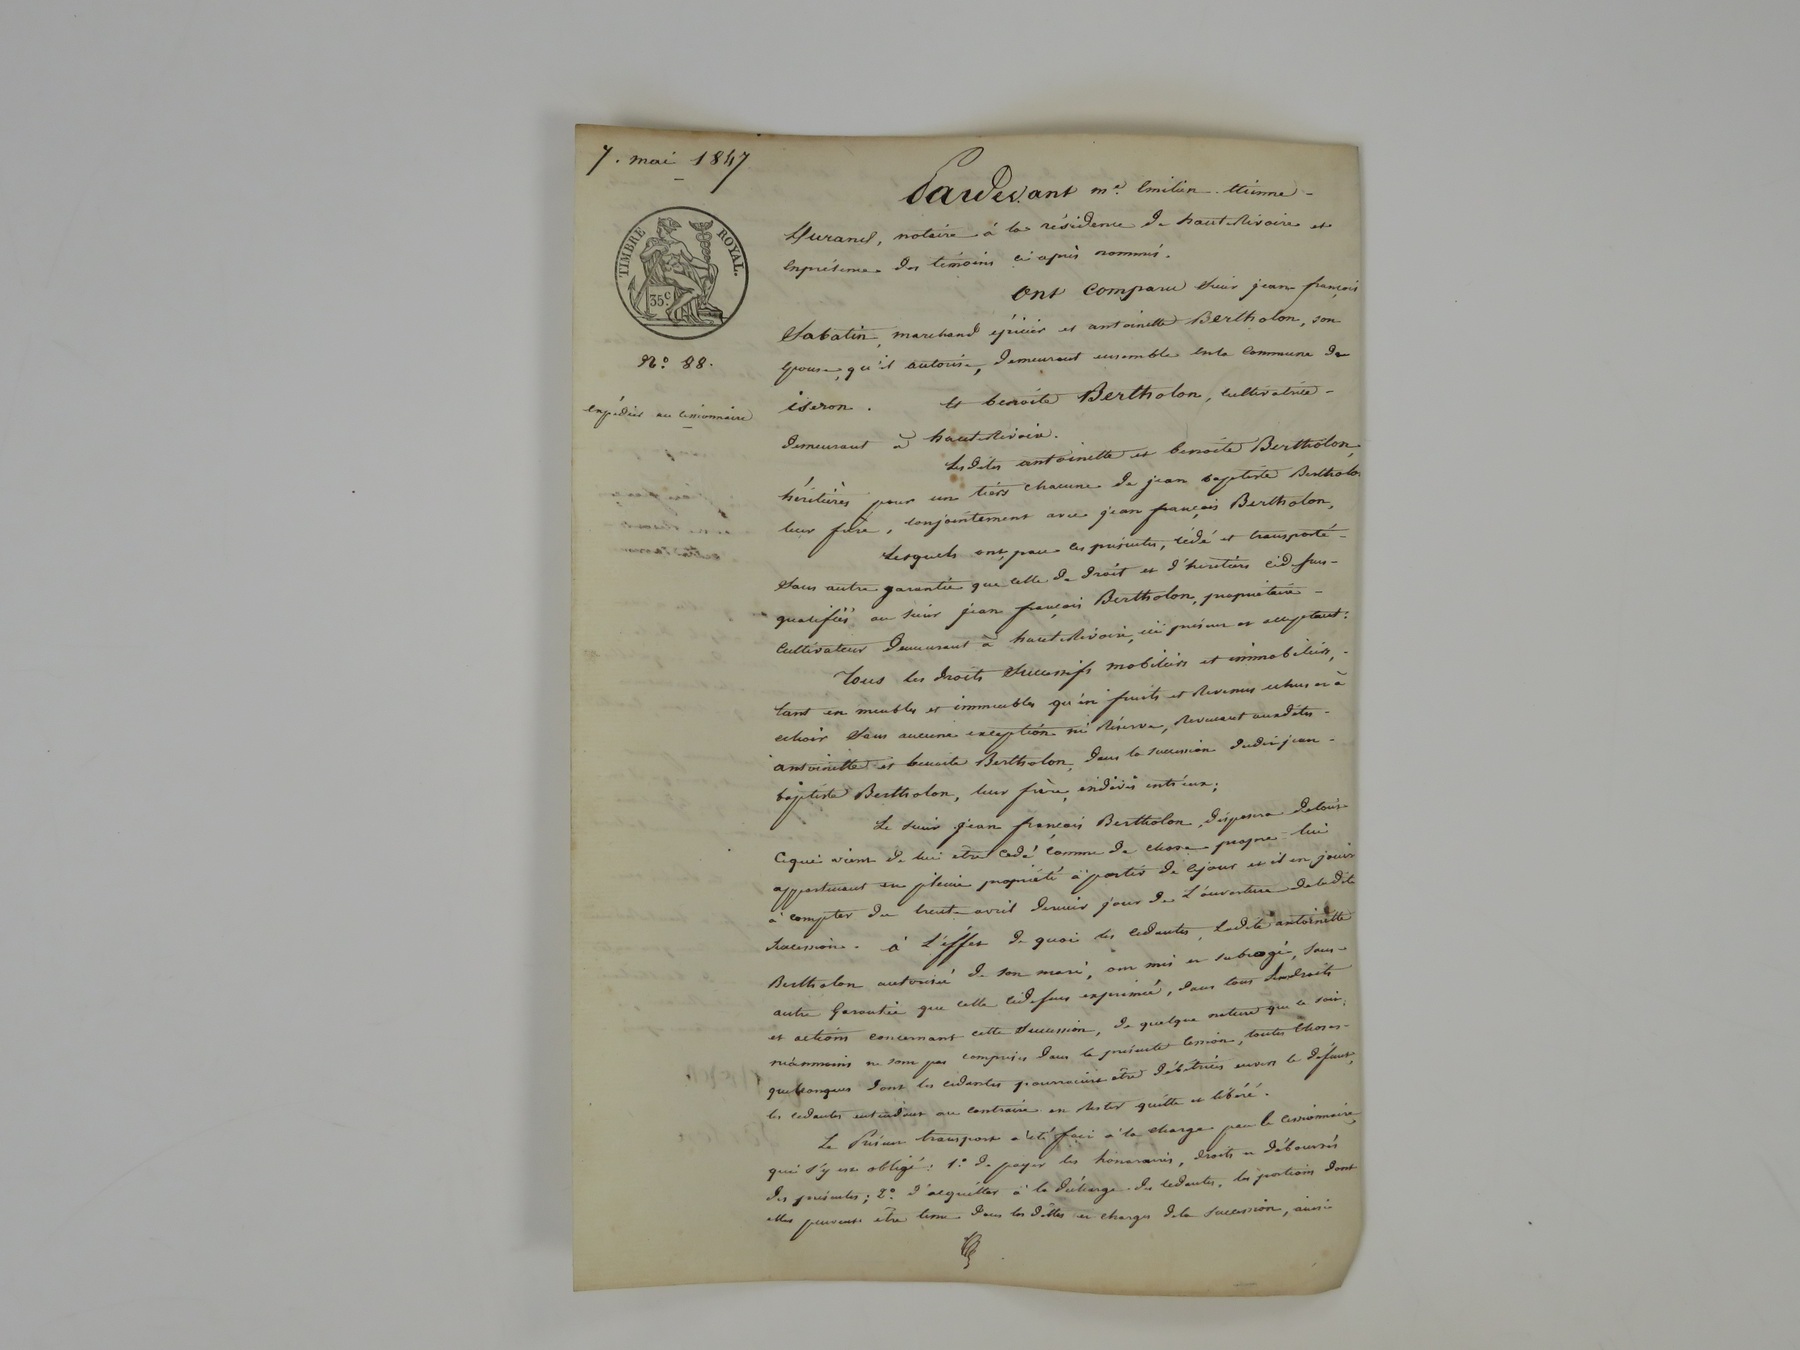 7. mai 1847
TIMBRE ROYAL.
35c
No. 88.
expédiée au cessionnaire
Pardevant me. Emilien Etienne
Durand, notaire à la résidence de haut Rivoire et
enprésence des témoins ci après nommés.
Ont comparu Sieur jean françois
Sabatin, marchand épicier et antoinette Bertholon, son
épouse, qu'il autorise, demeurant ensemble enla Commune de
iseron. Et benoite Bertholon, cultivatrice
demeurant à haut Rivoire.
Lesdites antoinette et benoite Bertholon,
héritières pour un tiers chacune de jean baptiste Bertholon
leur frère, conjointement avec jean françois Bertholon,
Lesquels ont, par ces présentes, cédé et transporté
Sans autre garantie que celle de droit et d'heritiers cidessus
qualifiés au sieur jean françois Bertholon, propriétaire
Cultivateur demeurant à haut Rivoire, ici présent et acceptant:
Tous les droits Successifs mobiliers et immobiliers,
tant en meubles et immeubles qu'en fruits et Revenus echus et à
echoir Sans aucune exception ni Réserve, Revenant auxdites
antoinette et benoite Bertholon, dans la succession dudit jean
baptiste Bertholon, leur frère, indivis entr'eux;
Le sieur jean françois Bertholon, disposera de tout
cequi vient de lui être cedé comme de chose propre lui
appartenant en pleine propriété à partir de cejour et il en jouir
à compter du trente avril dernier jour de L'ouverture deladite
Succession. à L'éffet de quoi les cedantes, Ladite antoinette
Bertholon autorisée de son mari, ont mis et subrogé, sans
autre Garantie que celle cidessus exprimée, dans tous droits
et actions concernant cette Succession, de quelque nature que ce soit;
néanmoins ne sont pas comprises dans la présente Cession, toutes Choses
quelconques dont les cedantes pourraient être débitrices envers le défunt,
les cedantes entendant au contraire en Rester quitte et libéré.
Le Présent transport a été fait à la charge par le Cessionnaire
qui s'y est obligé: 1o. de payer les honoraires, droits et déboursés
des présentes; 2o. d'acquitter à la décharge des cedantes, les portions dont
elles peuvent être tenue dans les dettes et charges dela Succession, ainsi